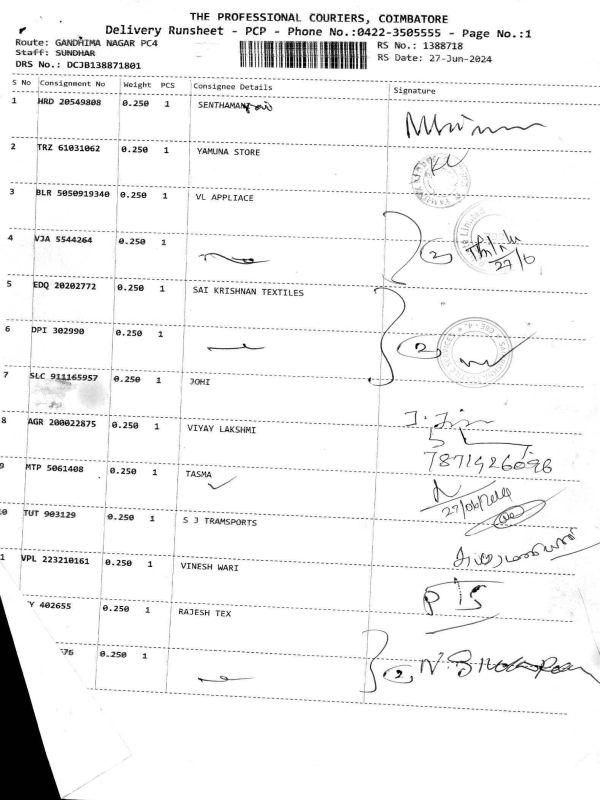 THE PROFESSIONAL COURIERS, COIMBATORE
Delivery Runsheet - PCP - Phone No.:0422-3505555 - Page No.:1
Route: GANDHIMA NAGAR PC4
RS No.: 1388718
Staff: SUNDHAR
RS Date: 27-Jun-2024
DRS No.: DCJB138871801
S No Consignment No Weight PCS Consignee Details Signature
1 HRD 20549808 0.250 1 SENTHAMAN
2 TRZ 61031062 0.250 1 YAMUNA STORE
3 BLR 5050919340 0.250 1 VL APPLIACE
4 VJA 5544264 0.250 1
2
27/6
5 EDQ 20202772 0.250 1 SAI KRISHNAN TEXTILES
6 DPI 302990 0.250 1
2
7 SLC 911165957 0.250 1 JOHI
8 AGR 200022875 0.250 1 VIYAY LAKSHMI
7871926098
9 MTP 5061408 0.250 1 TASMA
27/06/2024
10 TUT 903129 0.250 1 S J TRAMSPORTS
1 VPL 223210161 0.250 1 VINESH WARI
Y 402655 0.250 1 RAJESH TEX
576 0.250 1
2